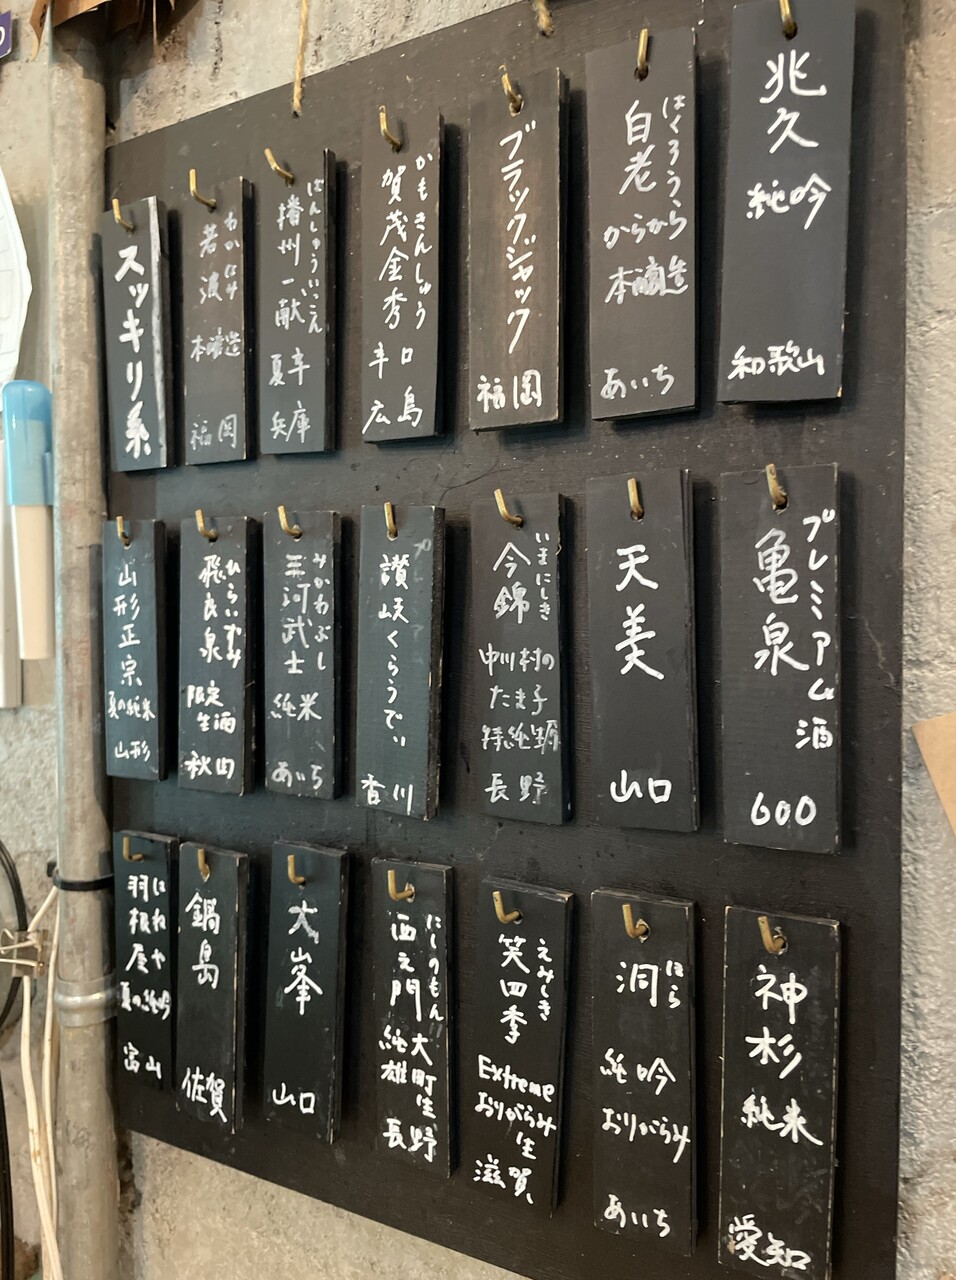 スッキリ系
若波
わかなみ
本醸造
福岡
播州一献
ばんしゅういっこん
夏辛
兵庫
賀茂金秀
かもきんしゅう
辛口
広島
ブラックジャック
福岡
白老
はくろう
からから
本醸造
あいち
兆久
純吟
和歌山
山形正宗
夏の純米
山形
飛良泉
ひらいずみ
限定
生酒
秋田
三河武士
みかわぶし
純米
あいち
讃岐くらうでぃ
香川
今錦
いまにしき
中川村の
たま子
特純
長野
天美
山口
亀泉
プレミアム酒
600
羽根屋
はねや
夏の純吟
富山
鍋島
佐賀
大峯
山口
西之門
にしのもん
純大
雄町生
長野
笑四季
えみしき
Extreme
おりがらみ
生
滋賀
洞
ほら
純吟
おりがらみ
あいち
神杉
純米
愛知